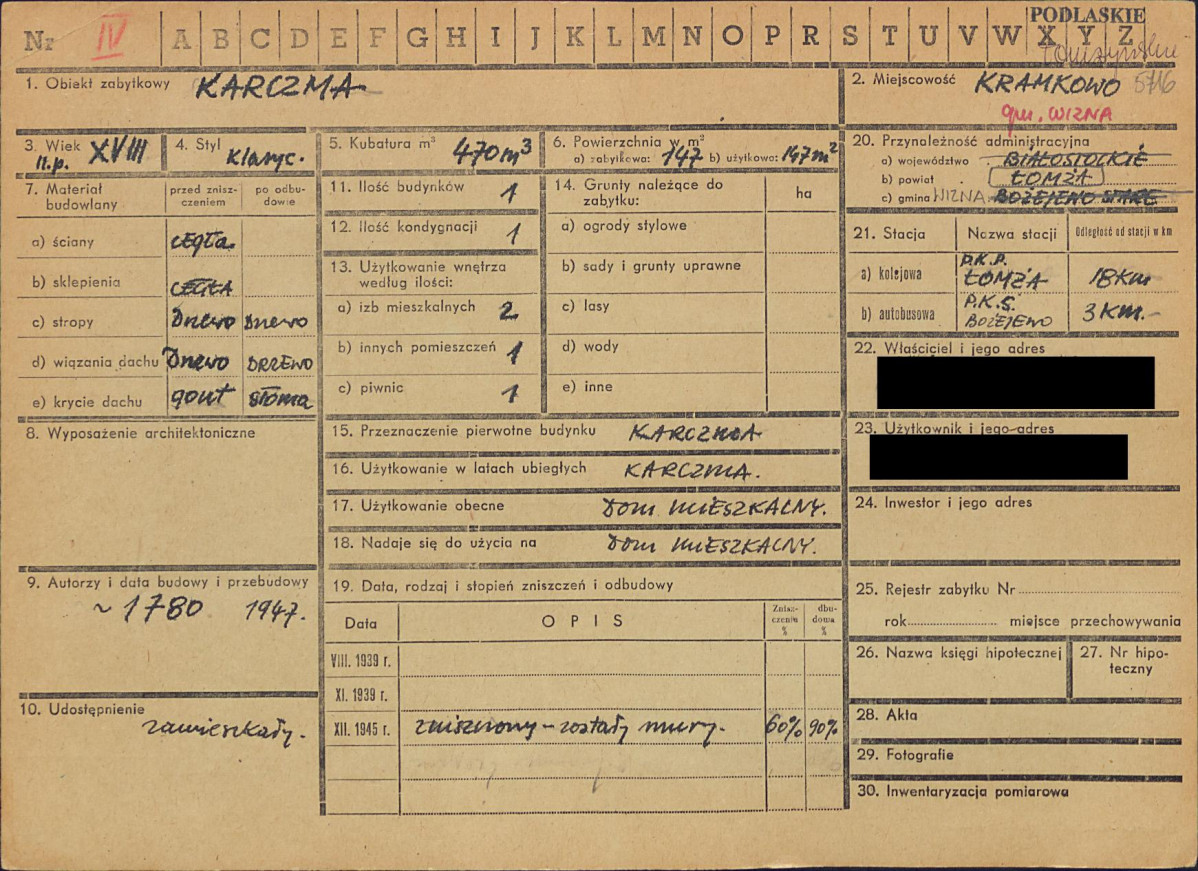 Nr IV A B C D E F G H I J K L M N O P R S T U V W X Y Z
PODLASKIE
1. Obiekt zabytkowy KARCZMA
2. Miejscowość KRAMKOWO 5716
gm. WIZNA
3. Wiek II.p. XVIII
4. Styl klasyc.
5. Kubatura m³ 470 m3
6. Powierzchnia w m²
a) zabytkowa: 147 b) użytkowa: 147 m2
7. Materiał budowlany
przed zniszczeniem
po odbudowie
a) ściany cegła
b) sklepienia CEGŁA
c) stropy Drzewo Drzewo
d) wiązania dachu Drzewo DRZEWO
e) krycie dachu gont słoma
8. Wyposażenie architektoniczne
9. Autorzy i data budowy i przebudowy
~ 1780 1947.
10. Udostępnienie
zamieszkały.
11. Ilość budynków 1
12. Ilość kondygnacji 1
13. Użytkowanie wnętrza
według ilości:
a) izb mieszkalnych 2
b) innych pomieszczeń 1
c) piwnic 1
14. Grunty należące do
zabytku:
ha
a) ogrody stylowe
b) sady i grunty uprawne
c) lasy
d) wody
e) inne
15. Przeznaczenie pierwotne budynku KARCZMA
16. Użytkowanie w latach ubiegłych KARCZMA.
17. Użytkowanie obecne DOM MIESZKALNY.
18. Nadaje się do użycia na DOM MIESZKALNY.
19. Data, rodzaj i stopień zniszczeń i odbudowy
Data
OPIS
Zniszczenia %
dbudowa %
VIII. 1939 r.
XI. 1939 r.
XII. 1945 r. zniszczony – zostały mury. 60% 90%
20. Przynależność administracyjna
a) województwo BIAŁOSTOCKIE
b) powiat ŁOMŻA
c) gmina WIZNA BOŻEJEWO STARE
21. Stacja
Nazwa stacji
Odległość od stacji w km
a) kolejowa P.K.P. ŁOMŻA 18 KM
b) autobusowa P.K.S. BOŻEJEWO 3 KM.–
22. Właściciel i jego adres
23. Użytkownik i jego adres
24. Inwestor i jego adres
25. Rejestr zabytku Nr
rok miejsce przechowywania
26. Nazwa księgi hipotecznej
27. Nr hipoteczny
28. Akta
29. Fotografie
30. Inwentaryzacja pomiarowa